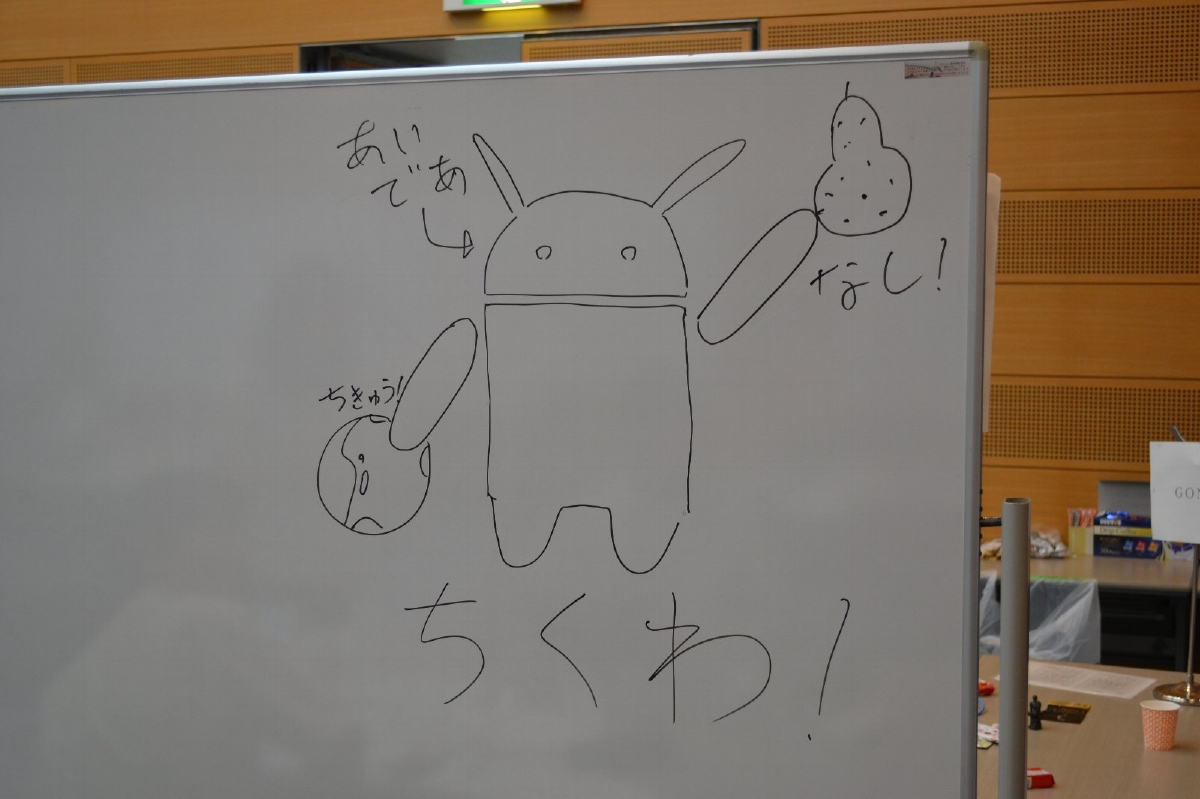 あい
であ
なし!
ちきゅう!
ちくわ!
GON